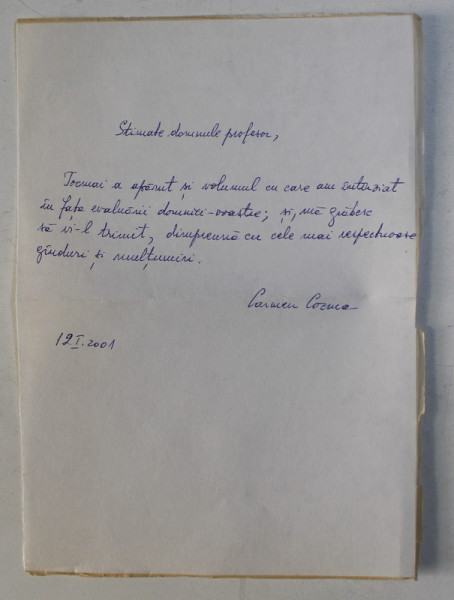 Stimate domnule profesor,
Tocmai a apărut și volumul cu care am întârziat
în fața evaluării domniei-voastre; și, mă grăbesc
să vi-l trimit, dimpreună cu cele mai respectuoase
gînduri și mulțumiri.
Carmen Cozma
12 I. 2001